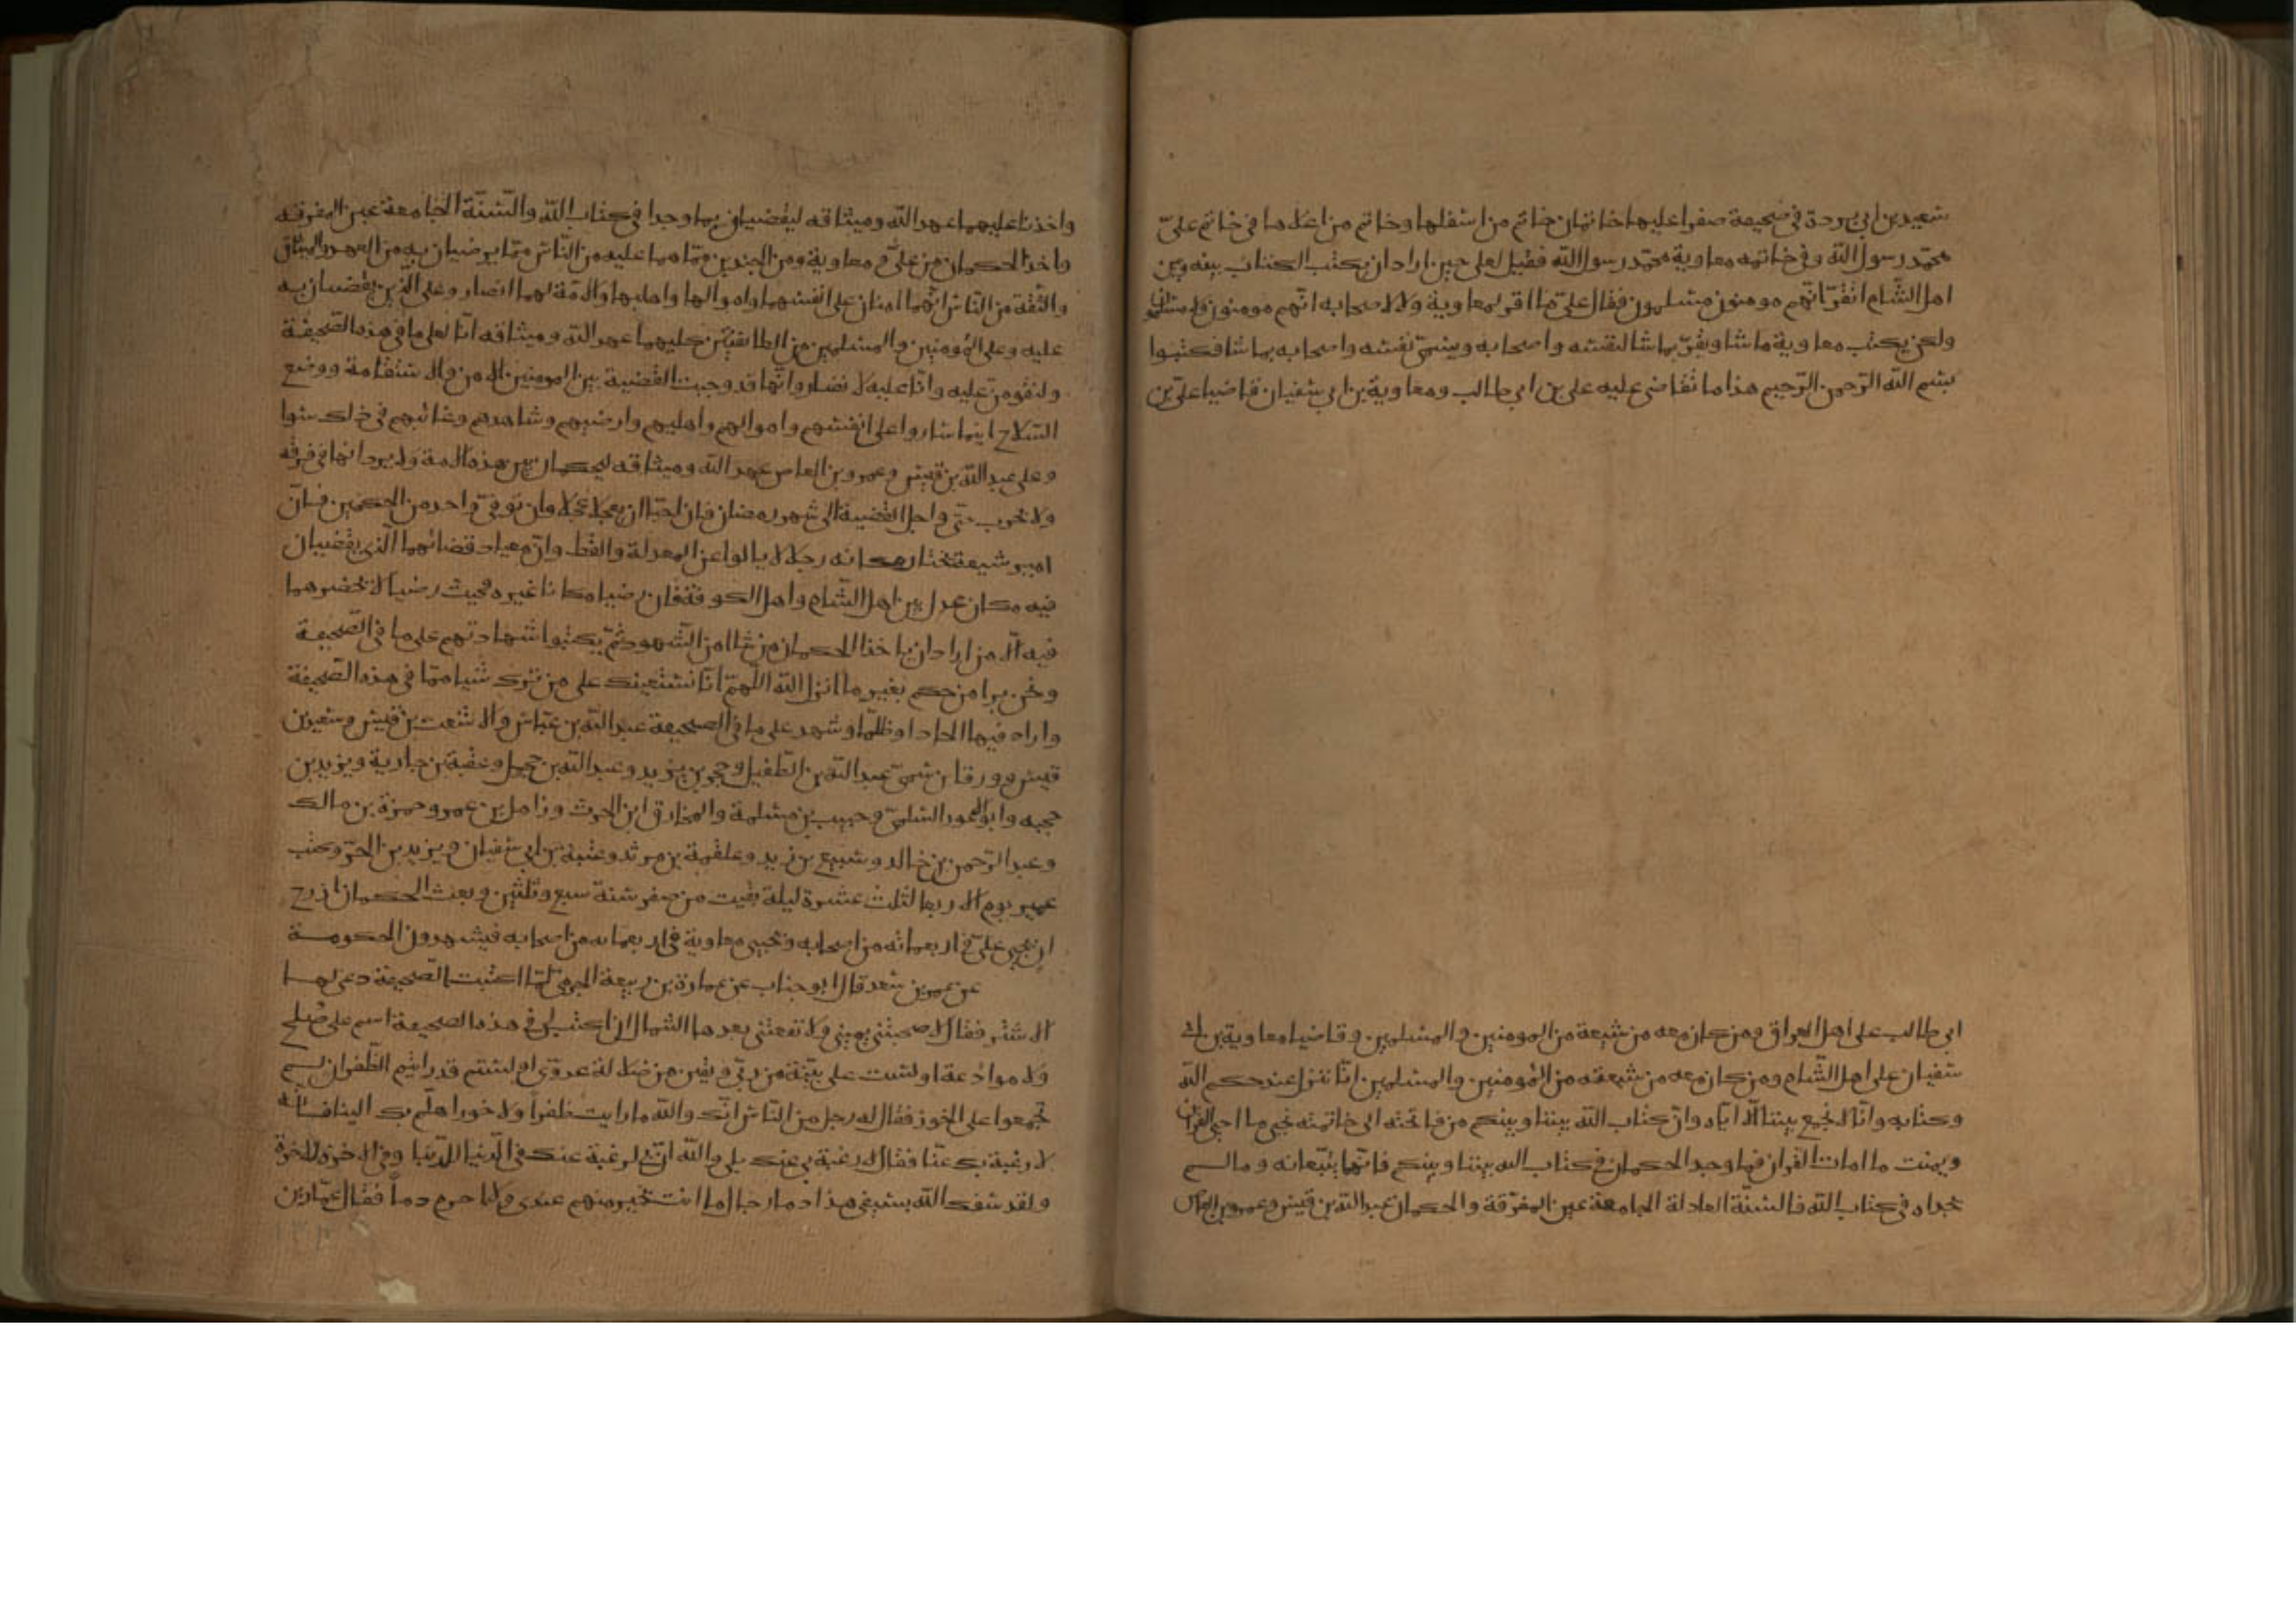 سعيد بن ابي بردة في صحيفة صفرا عليها خاتمان خاتم من اسفلها وخاتم من اعلاها في خاتم عليّ
محمّد رسول اللّه وفي خاتمه معاوية محمّد رسول اللّه فقيل لعلي حين اراد ان يكتب الكتاب بينه وبين
اهل الشّام اتقرّ انّهم مومنون مسلمون فقال عليّ ما اقر لمعاوية ولا لاصحابه انّهم مومنون ولا مسلمون
ولكن يكتب معاوية ما شا ويقرّ بما شا لنفسه واصحابه ويسمّي نفسه واصحابه بما شا فكتبوا
بسم اللّه الرّحمن الرّحيم هذا ما تقاضى عليه علي بن ابي طالب ومعاوية بن ابي سفيان قاضيا عليّ بن
ابي طالب على اهل العراق ومن كان معه من شيعة من المومنين والمسلمين وقاضيا معاوية بن ابي
سفيان على اهل الشّام ومن كان معه من شيعته من المومنين والمسلمين انّا ننزل عند حكم اللّه
وكتابه وانّا لا يجمع بيننا الّا ايّاه وانّ كتاب اللّه بيننا وبينكم من فاتحته الى خاتمته نحيي ما احيى القران
ونميت ما امات القران فما وجد الحكمان في كتاب الله بيننا وبينكم فانّهما يتّبعانه وما لم
يجداه في كتاب اللّه فالسّنّة العادلة الجامعة غير المفرّقة والحكمان عبد اللّه بن قيس وعمرو بن العاص
واخذنا عليهما عهد اللّه وميثاقه ليقضيان بما وجدا في كتاب اللّه والسّنّة الجامعة غير المفرقة
واخذ الحكمان من عليّ و معاوية ومن الجندين ممّا هما عليه من النّاس ممّا يرضيان به من العهد والميثاق
والثّقة من النّاس انّهما امنان على انفسهما واموالهما واهليهما والامّة لهما انصار وعلى الّذي يقضيان به
عليه وعلى المومنين والمسلمين من الطائفتين كليهما عهد اللّه وميثاقه انّا لعلى ما في هذه الصّحيفة
ولنقومنّ عليه وانّا عليه لانصار وانّها قد وجبت القضية بين المومنين الامن والاستقامة ووضع
السّلاح اينما ساروا على انفسهم واموالهم واهليهم وارضيهم وشاهدهم وغائبهم في ذلك سوا
وعلى عبد اللّه بن قيس وعمرو بن العاص عهد اللّه وميثاقه ليحكمان بين هذه الامة ولا يردانها في فرقة
ولا حرب حتّى واجل القضية الى شهر رمضان فان احبّا ان يعجلا عجلا وان توفّي واحد من الحكمين فانّ
امير شيعته يختار مكانه رجلا لا يالوا عن المعدلة والقسط وانّ ميعاد قضائهما الّذي يقضيان
فيه مكان عدل بين اهل الشّام واهل الكوفة فان رضيا مكانا غيره فحيث رضيا لا يحضرهما
فيه الّا من ارادا ان ياخذا الحكمان من شاا من الشّهود ثمّ يكتبوا شهادتهم على ما في الصّحيفة
ونحن برا من حكم بغير ما انزل اللّه اللّهمّ انّا نستعينك على من ترك شيا ممّا في هذه الصّحيفة
واراد فيها الحادا وظلما وشهد على ما في الصحيفة عبد اللّه بن عبّاس والاشعث بن قيس وسعيد بن
قيس وورقا بن سميّ وعبد اللّه بن الطّفيل وحجر بن يزيد وعبد اللّه بن حجل وعقبة بن جارية ويزيد بن
حجيه وابو الاعور السّلميّ وحبيب بن مسلمة والمخارق ابن الحرث وزامل بن عمرو وحمزة بن مالك
وعبد الرّحمن بن خالد وسبيع بن زيد وعلقمة بن مرثد وعتبة بن ابي سفيان ويزيد بن الحرّ وكتب
عمير يوم الاربعا لثلث عشرة ليلة بقيت من صفر سنة سبع وثلثين وبعث الحكمان اذرح
ان يجي عليّ في اربعمائه من اصحابه ويجيى معاوية في اربعمايه من اصحابه فيشهدون الحكومة
عن عمر بن سعد قال ابو جناب عن عمارة بن ربيعة الجرمي لمّا اكتبت الصّحيفة دعي لها
الاشتر فقال لا صحبتني يميني ولا نفعتني بعدها الشمال ان اكتب لي في هذه الصحيفة اسم على صلح
ولا موادعة اولست على بيّنة من ربّي ويقين من ضلالة عدوّي اولستم قد رايتم الظّفر ان لم
تجمعوا على الخور فقال له رجل من النّاس انّك والله ما رايت ظفراً ولا خورا هلّم بك الينا فانّه
لا رغبة بك عنّا فقال لا رغبة بي عنك بلى واللّه انّ لي لرغبة عنك في الدّنيا للدّنيا وفي الاخرة للاخرة
ولقد سفك اللّه بسيفي هذا دما رجال ما انت بخير منهم عندي ولا احرم دماً فقال عمّار بن